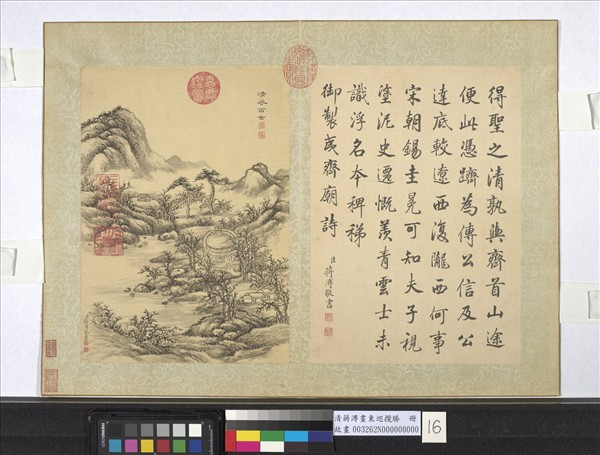 得聖之清孰與齊首山途
便此憑躋為傳公信及公
達底較遼西復隴西何事
宋朝錫圭冕可知夫子視
塗泥史遷慨羨青雲士未
識浮名本稗稊
御製夷齊廟詩
臣蔣溥敬書
清風百世
清蔣溥畫東巡攬勝 冊
故畫 003262N000000000
16